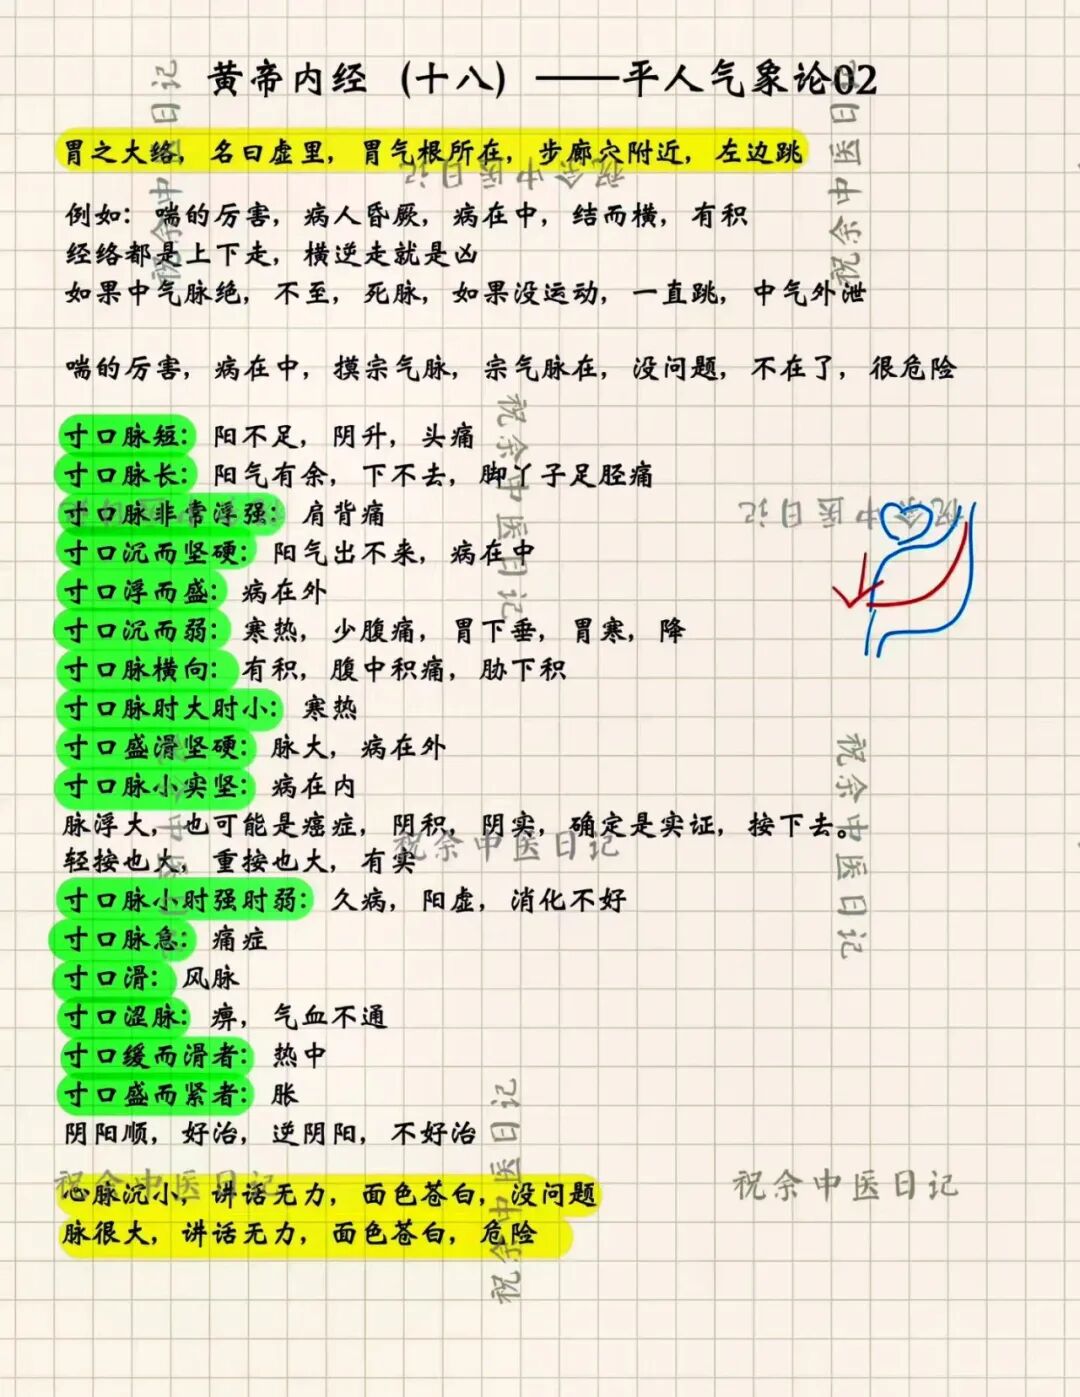 黄帝内经（十八）——平人气象论02
胃之大络，名曰虚里，胃气根所在，步廊穴附近，左边跳
例如：喘的厉害，病人昏厥，病在中，结而横，有积
经络都是上下走，横逆走就是凶
如果中气脉绝，不至，死脉，如果没运动，一直跳，中气外泄
喘的厉害，病在中，摸宗气脉，宗气脉在，没问题，不在了，很危险
寸口脉短：阳不足，阴升，头痛
寸口脉长：阳气有余，下不去，脚丫子足胫痛
寸口脉非常浮强：肩背痛
寸口沉而坚硬：阳气出不来，病在中
寸口浮而盛：病在外
寸口沉而弱：寒热，少腹痛，胃下垂，胃寒，降
寸口脉横向：有积，腹中积痛，胁下积
寸口脉时大时小：寒热
寸口盛滑坚硬：脉大，病在外
寸口脉小实坚：病在内
脉浮大，也可能是癌症，阴积，阴实，确定是实证，按下去。
轻按也大，重按也大，有实
寸口脉小时强时弱：久病，阳虚，消化不好
寸口脉急：痛症
寸口滑：风脉
寸口涩脉：痹，气血不通
寸口缓而滑者：热中
寸口盛而紧者：胀
阴阳顺，好治，逆阴阳，不好治
心脉沉小，讲话无力，面色苍白，没问题
脉很大，讲话无力，面色苍白，危险
祝余中医日记
祝余中医日记
祝余中医日记
祝余中医日记
祝余中医日记
祝余中医日记
祝余中医日记
祝余中医日记
祝余中医日记
祝余中医日记